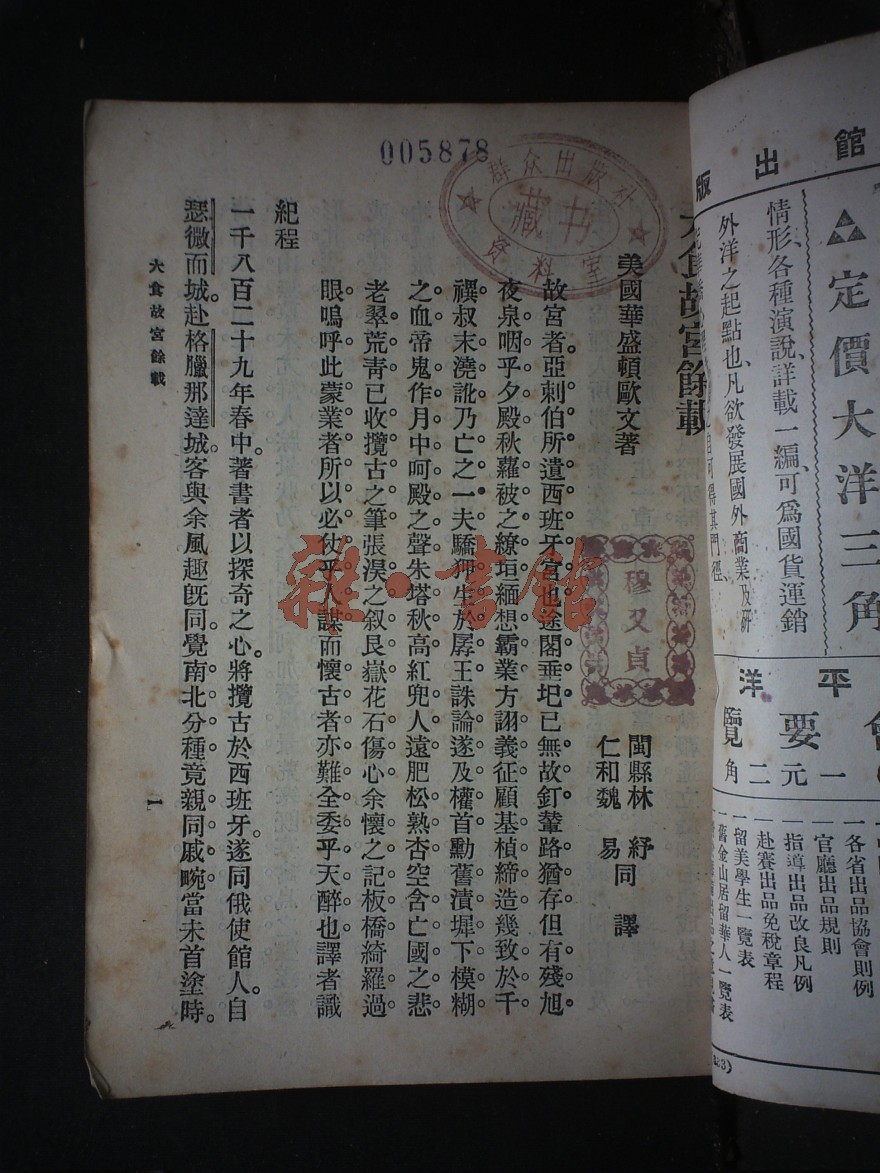 005878
群众出版社
藏书
资料室
大食故宮餘載
美國華盛頓歐文著
閩縣林 紓同 譯
仁和魏 易
穆又貞
故宮者。亞刺伯所遺西班牙宮也。途閣垂圯。已無故釘。輦路猶存。但有殘旭。
夜泉咽乎夕殿。秋蘿被之繚垣。緬想霸業方詡。義征顧基楨締造。幾致於千
禩。叔末澆訛。乃亡之一夫。驕狎生於孱王。誅論遂及權首。勳舊漬墀下模糊
之血。帝鬼作月中呵殿之聲。朱塔秋高。紅兜人遠。肥松熟杏。空含亡國之悲。
老翠荒青。已收攬古之筆。張淏之叙艮嶽。花石傷心。余懷之記板橋。綺羅過
眼。嗚呼。此蒙業者所以必仗乎人謀。而懷古者亦難全委乎天醉也。譯者識
紀程
一千八百二十九年春中。著書者以探奇之心。將攬古於西班牙。遂同俄使館人。自
瑟微而城。赴格臘那達城。客與余風趣旣同。覺南北分種。竟親同戚畹。當未首塗時。
大食故宮餘載
一
館出版
定價大洋三角
情形、各種演說、詳載一編、可爲國貨運銷
外洋之起點也、凡欲發展國外商業及研
平洋
要覽
一元二角
一各省出品協會則例
一官廳出品規則
一指導出品改良凡例
一赴賽出品免稅章程
一留美學生一覽表
一舊金山居留華人一覽表
雜·書館